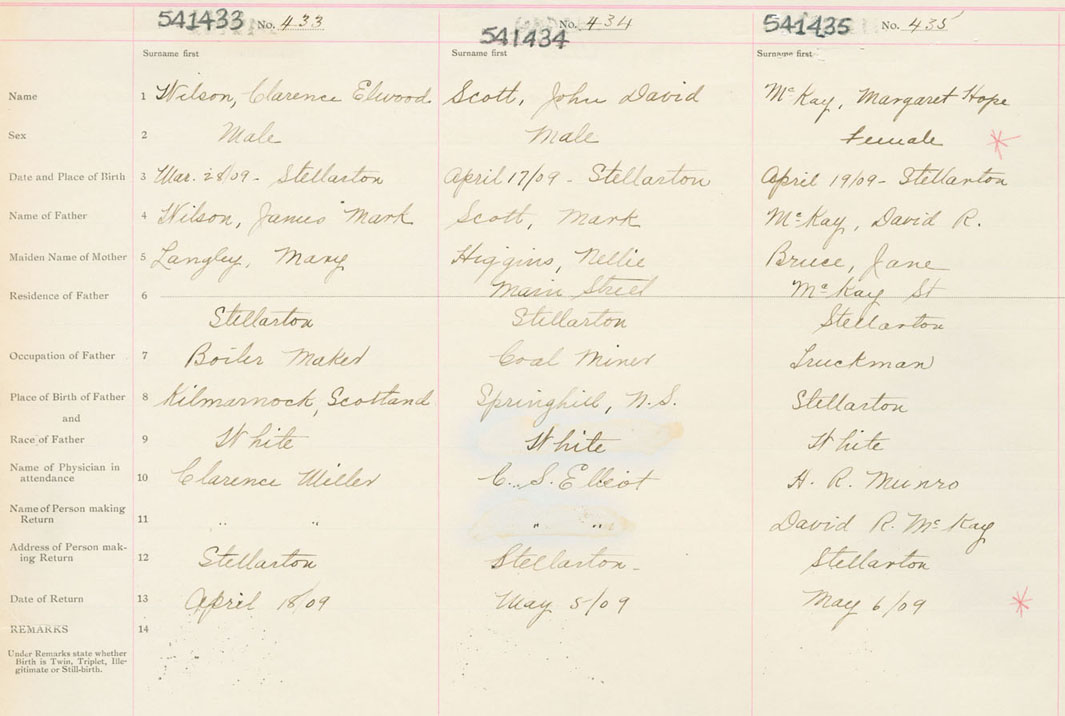 541433 No. 433 541434 No. 434 541435 No. 435
Surname first Surname first Surname first
Name 1 Wilson, Clarence Elwood Scott, John David McKay, Margaret Hope
Sex 2 Male Male Female
Date and Place of Birth 3 Mar. 28/09 - Stellarton April 17/09 - Stellarton April 19/09 - Stellarton
Name of Father 4 Wilson, James Mark Scott, Mark McKay, David R.
Maiden Name of Mother 5 Langley, Mary Higgins, Nellie Bruce, Jane
Residence of Father 6 Main Street McKay St
Stellarton Stellarton Stellarton
Occupation of Father 7 Boiler Maker Coal Miner Truckman
Place of Birth of Father 8 Kilmarnock, Scotland Springhill, N.S. Stellarton
and
Race of Father 9 White White White
Name of Physician in
attendance 10 Clarence Miller C. S. Elliot H. R. Munro
Name of Person making
Return 11 " " " " David R. McKay
Address of Person mak-
ing Return 12 Stellarton Stellarton - Stellarton
Date of Return 13 April 18/09 May 5/09 May 6/09
REMARKS 14
Under Remarks state whether
Birth is Twin, Triplet, Ille-
gitimate or Still-birth.